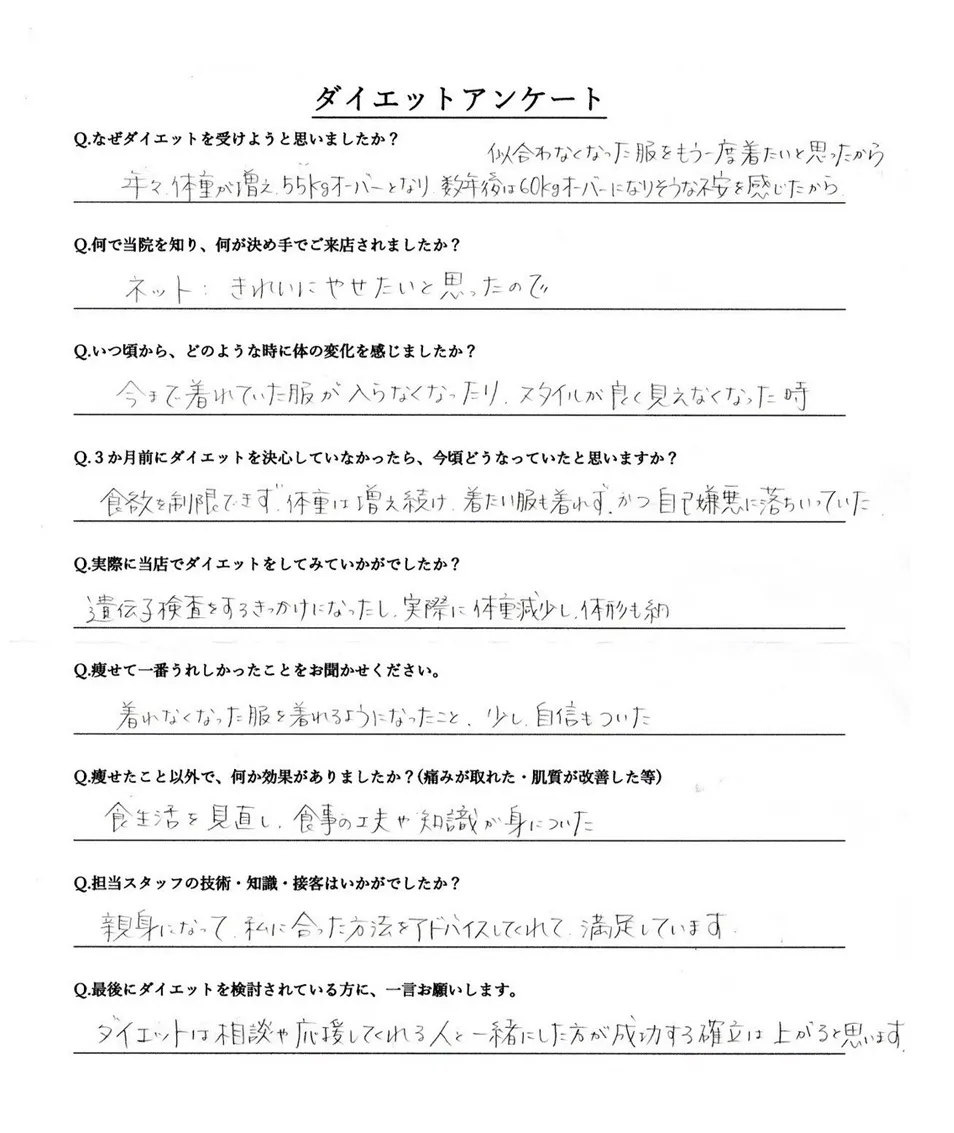 ダイエットアンケート
Q.なぜダイエットを受けようと思いましたか?
似合わなくなった服をもう一度着たいと思ったから
年々、体重が増え、55kgオーバーとなり、数年後は60kgオーバーになりそうな不安を感じたから
Q.何で当院を知り、何が決め手でご来店されましたか?
ネット: きれいにやせたいと思ったので
Q.いつ頃から、どのような時に体の変化を感じましたか?
今まで着れていた服が入らなくなったり、スタイルが良く見えなくなった時
Q.3か月前にダイエットを決心していなかったら、今頃どうなっていたと思いますか?
食欲を制限できず、体重は増え続け、着たい服も着れず、かつ自己嫌悪に落ちいっていた
Q.実際に当店でダイエットをしてみていかがでしたか?
遺伝子検査をするきっかけになったし、実際に体重減少し、体形も細
Q.痩せて一番うれしかったことをお聞かせください。
着れなくなった服を着れるようになったこと、少し、自信もついた
Q.痩せたこと以外で、何か効果がありましたか?(痛みが取れた・肌質が改善した等)
食生活を見直し、食事の工夫や知識が身についた
Q.担当スタッフの技術・知識・接客はいかがでしたか?
親身になって、私に合った方法をアドバイスしてくれて、満足しています。
Q.最後にダイエットを検討されている方に、一言お願いします。
ダイエットは相談や応援してくれる人と一緒にした方が成功する確立は上がると思います。